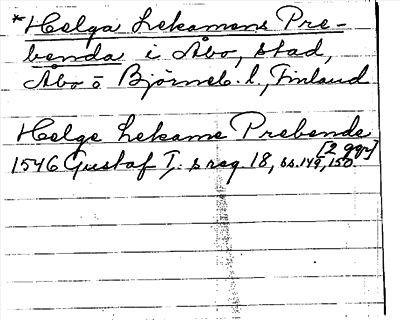 *Helga Lekamens Pre-
benda i Åbo, stad,
Åbo o Björneb. l, Finland
Helge Lekame Prebende
[2 ggr]
1546 Gustaf I: s reg. 18, ss. 149, 150.